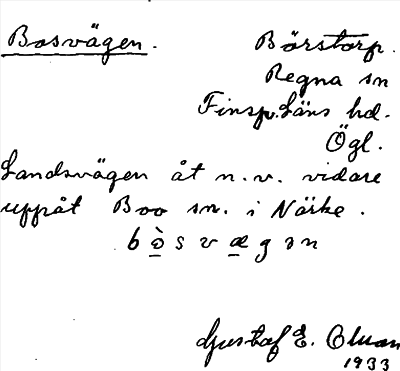 Bosvägen. Börstorp.
Regna sn
Finsp. Läns hd.
Ögl.
Landsvägen åt n.v. vidare
uppåt Boo sn. i Närke.
bòsvægən
Gustaf E.
1933